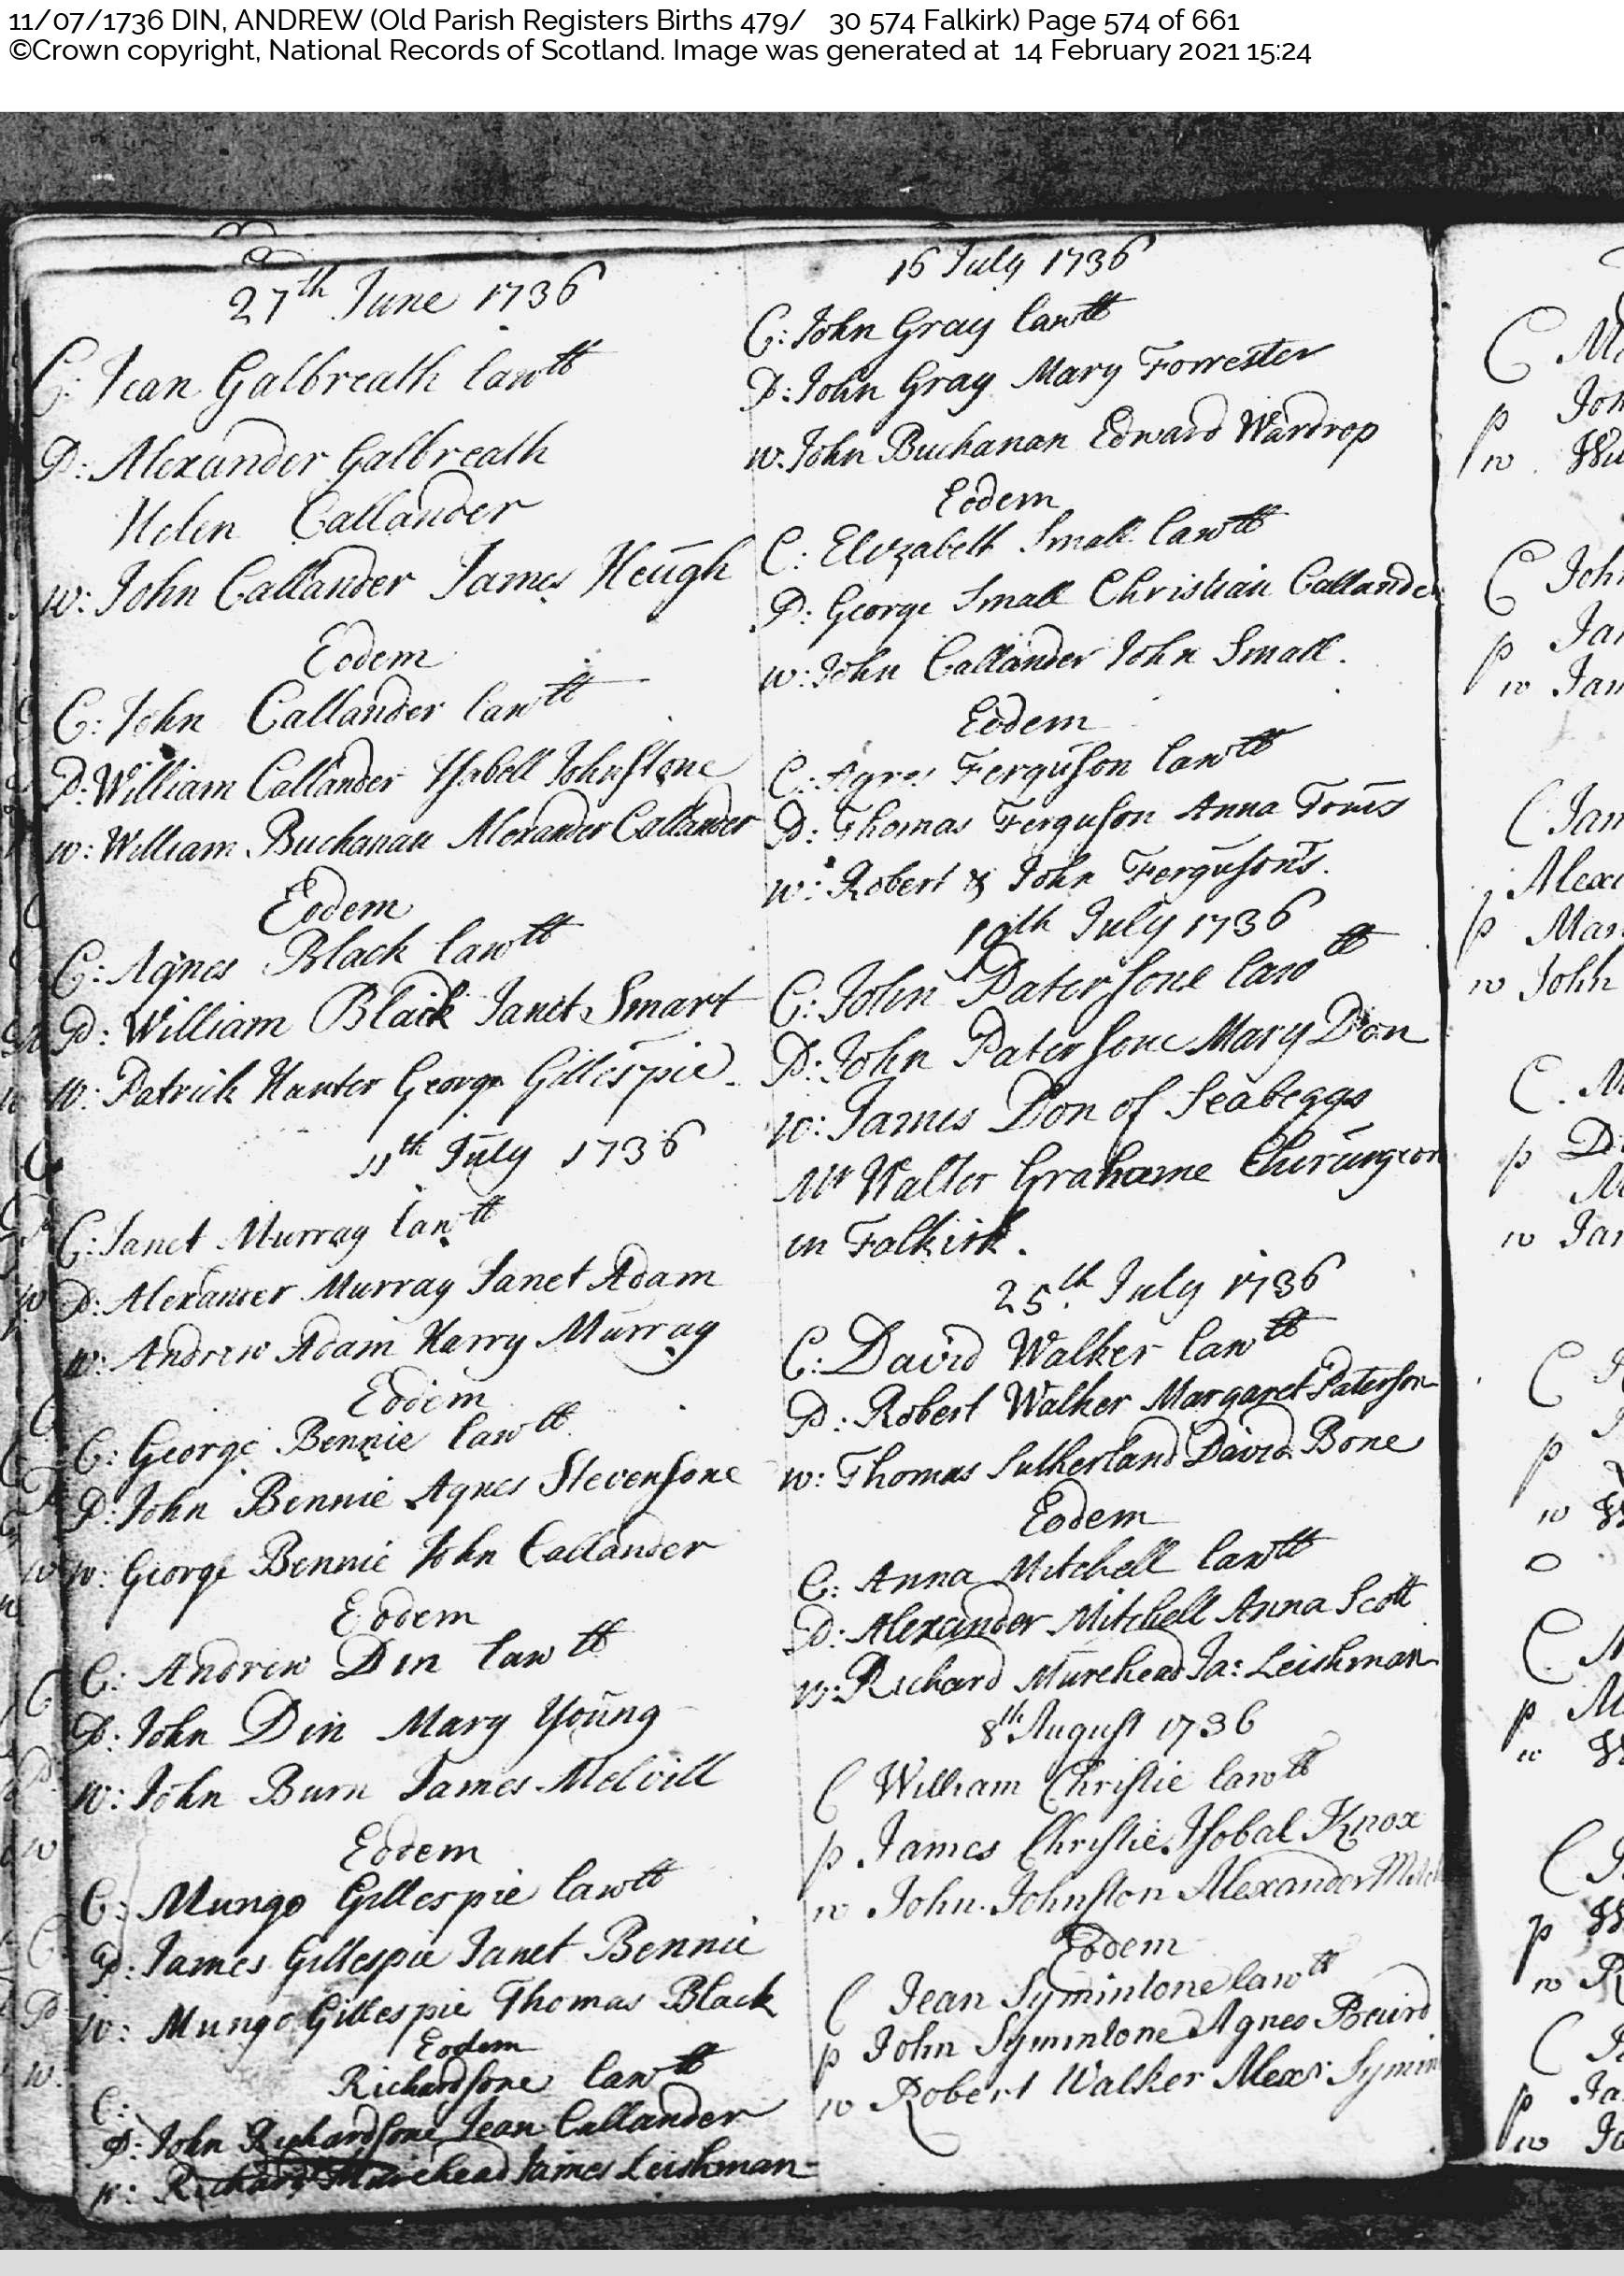 11/07/1736 DIN, ANDREW (Old Parish Registers Births 479/ 30 574 Falkirk) Page 574 of 661
©Crown copyright, National Records of Scotland. Image was generated at 14 February 2021 15:24
27th June 1736
C: Jean Galbreath lawtt
P: Alexander Galbreath
Helen Callander
W: John Callander James Heugh
Eodem
C: John Callander lawtt
P: William Callander Isabell Johnstone
W: William Buchanan Alexander Callander
Eodem
C: Agnes Black lawtt
P: William Black Janet Smart
W: Patrick Hunter George Gillespie
11th July 1736
C: Janet Murray lawtt
P: Alexander Murray Janet Adam
W: Andrew Adam Harry Murray
Eodem
C: George Bennie lawtt
P: John Bennie Agnes Stevensone
W: George Bennie John Callander
Eodem
C: Andrew Din lawtt
P: John Din Mary Young
W: John Burn James Melvill
Eodem
C: Mungo Gillespie lawtt
P: James Gillespie Janet Bennie
W: Mungo Gillespie Thomas Black
Eodem
C: Richardsone lawtt
P: John Richardsone Jean Callander
W: Richard Murehead James Leishman
16 July 1736
C: John Gray lawtt
P: John Gray Mary Forrester
W: John Buchanan Edward Wardrop
Eodem
C: Elizabeth Small lawtt
P: George Small Christian Callander
W: John Callander John Small.
Eodem
C: Agnes Ferguson lawtt
P: Thomas Ferguson Anna
W: Robert & John Fergusons.
19th July 1736
C: John Patersone lawtt
P: John Patersone Mary Don
W: James Don of Seabeggs
Mr Walter Grahame Chirurgeon
in Falkirk.
25th July 1736
C: David Walker lawtt
P: Robert Walker Margaret Paterson
W: Thomas Sutherland David Bone
Eodem
C: Anna Mitchell lawtt
P: Alexander Mitchell Anna Scott
W: Richard Murehead Ja: Leishman
8th August 1736
C William Christie lawtt
p James Christie Isobal Knox
w John Johnston Alexander
Eodem
C Jean Symintone lawtt
p John Symintone Agnes Beaird
w Robert Walker Alexr: Symin